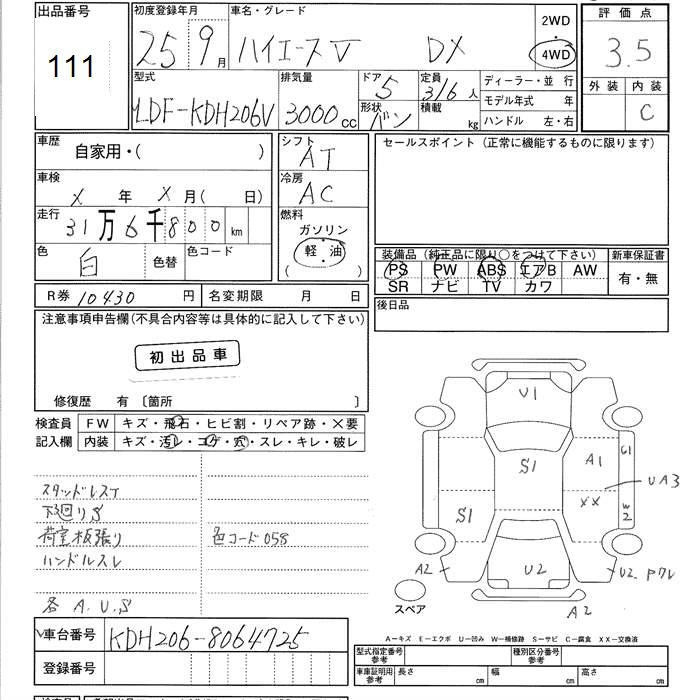 出品番号
111
初度登録年月
25 9月
車名・グレード
ハイエースV DX
2WD
・
4WD
評価点
3.5
外装 内装
C
型式
LDF-KDH206V
排気量
3000cc
ドア
5
形状
バン
定員
3/6人
積載
kg
ディーラー・並 行
モデル年式 年
ハンドル 左・右
車歴
自家用・( )
車検
X 年 X 月( 日)
走行
31万6千800km
色
白
色替
色コード
シフト
AT
冷房
AC
燃料
ガソリン
・
軽 油
( )
セールスポイント (正常に機能するものに限ります)
装備品 (純正品に限り○をつけて下さい)
PS PW ABS エアB AW
SR ナビ TV カワ
新車保証書
有・無
R券 10430 円
名変期限 月 日
後日品
注意事項申告欄(不具合内容等は具体的に記入して下さい)
初出品車
修復歴 有 〔箇所 〕
検査員
記入欄
FW キズ・飛石・ヒビ割・リペア跡・×要
内装 キズ・汚レ・コゲ・穴・スレ・キレ・破レ
スタッドレスT
下廻りS
荷室板張り
色コード058
ハンドルスレ
各 A.U.S
U1
S1
A1
G1
UA3
XX
W2
S1
A2
U2
U2
A2
スペア
A－キズ E－エクボ U－凹み W－補修跡 S－サビ C－腐食 XX－交換済
車台番号
KDH206-8064725
登録番号
型式指定番号
参考
種別区分番号
参考
車庫証明用
参考
長さ cm
幅 cm
高さ cm